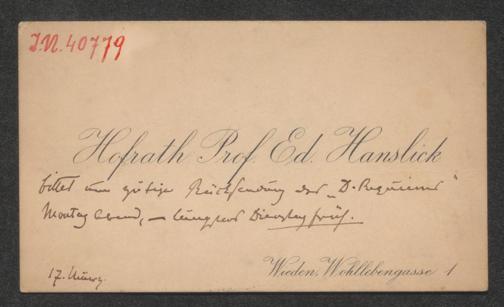 J.N. 40779
Hofrath Prof. Ed. Hanslick
bittet um gütige Rücksendung des „D. Requiems"
Montag abend, – längstens Dienstag früh.
17. März.
Wieden, Wohllebengasse 1